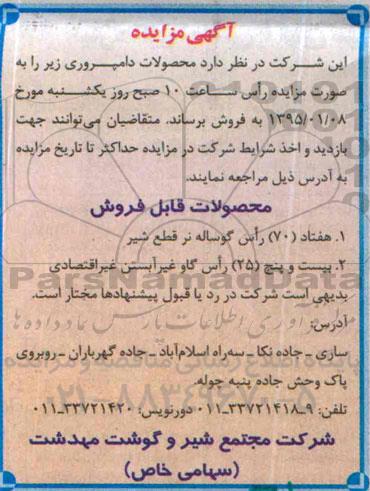 آگهی مزایده
این شرکت در نظر دارد محصولات دامپروری زیر را به
صورت مزایده رأس ساعت ۱۰ صبح روز یکشنبه مورخ
۱۳۹۵/۰۱/۰۸ به فروش برساند. متقاضیان می‌توانند جهت
بازدید و اخذ شرایط شرکت در مزایده حداکثر تا تاریخ مزایده
به آدرس ذیل مراجعه نمایند.
محصولات قابل فروش
۱. هفتاد (۷۰) رأس گوساله نر قطع شیر
۲. بیست و پنج (۲۵) رأس گاو غیرآبستن غیراقتصادی
بدیهی است شرکت در رد یا قبول پیشنهادها مختار است.
آدرس:
ساری ـ جاده نکا ـ سه‌راه اسلام‌آباد ـ جاده گهرباران ـ روبروی
پاک وحش جاده پنبه چوله.
تلفن: ۹ـ۳۳۷۲۱۴۱۸ـ۰۱۱ دورنویس: ۳۳۷۲۱۴۲۰ـ۰۱۱
شرکت مجتمع شیر و گوشت مهدشت
(سهامی خاص)
ParsNamadData
۰۲۱-۸۸۳۴۹۶۷۰-۵